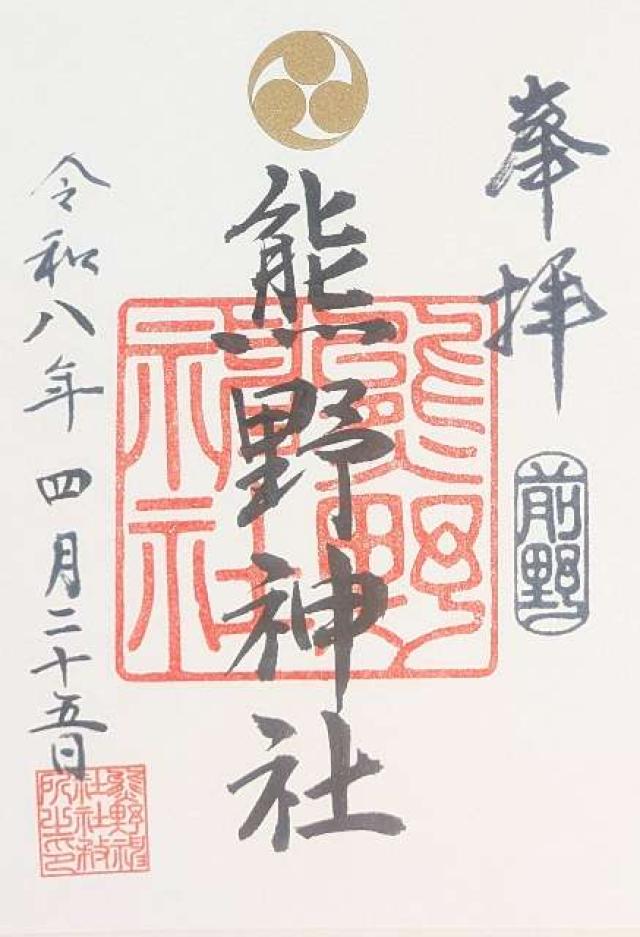 奉拝
前野
熊野神社
熊野神社
令和八年四月二十五日
熊野神社社務所之印